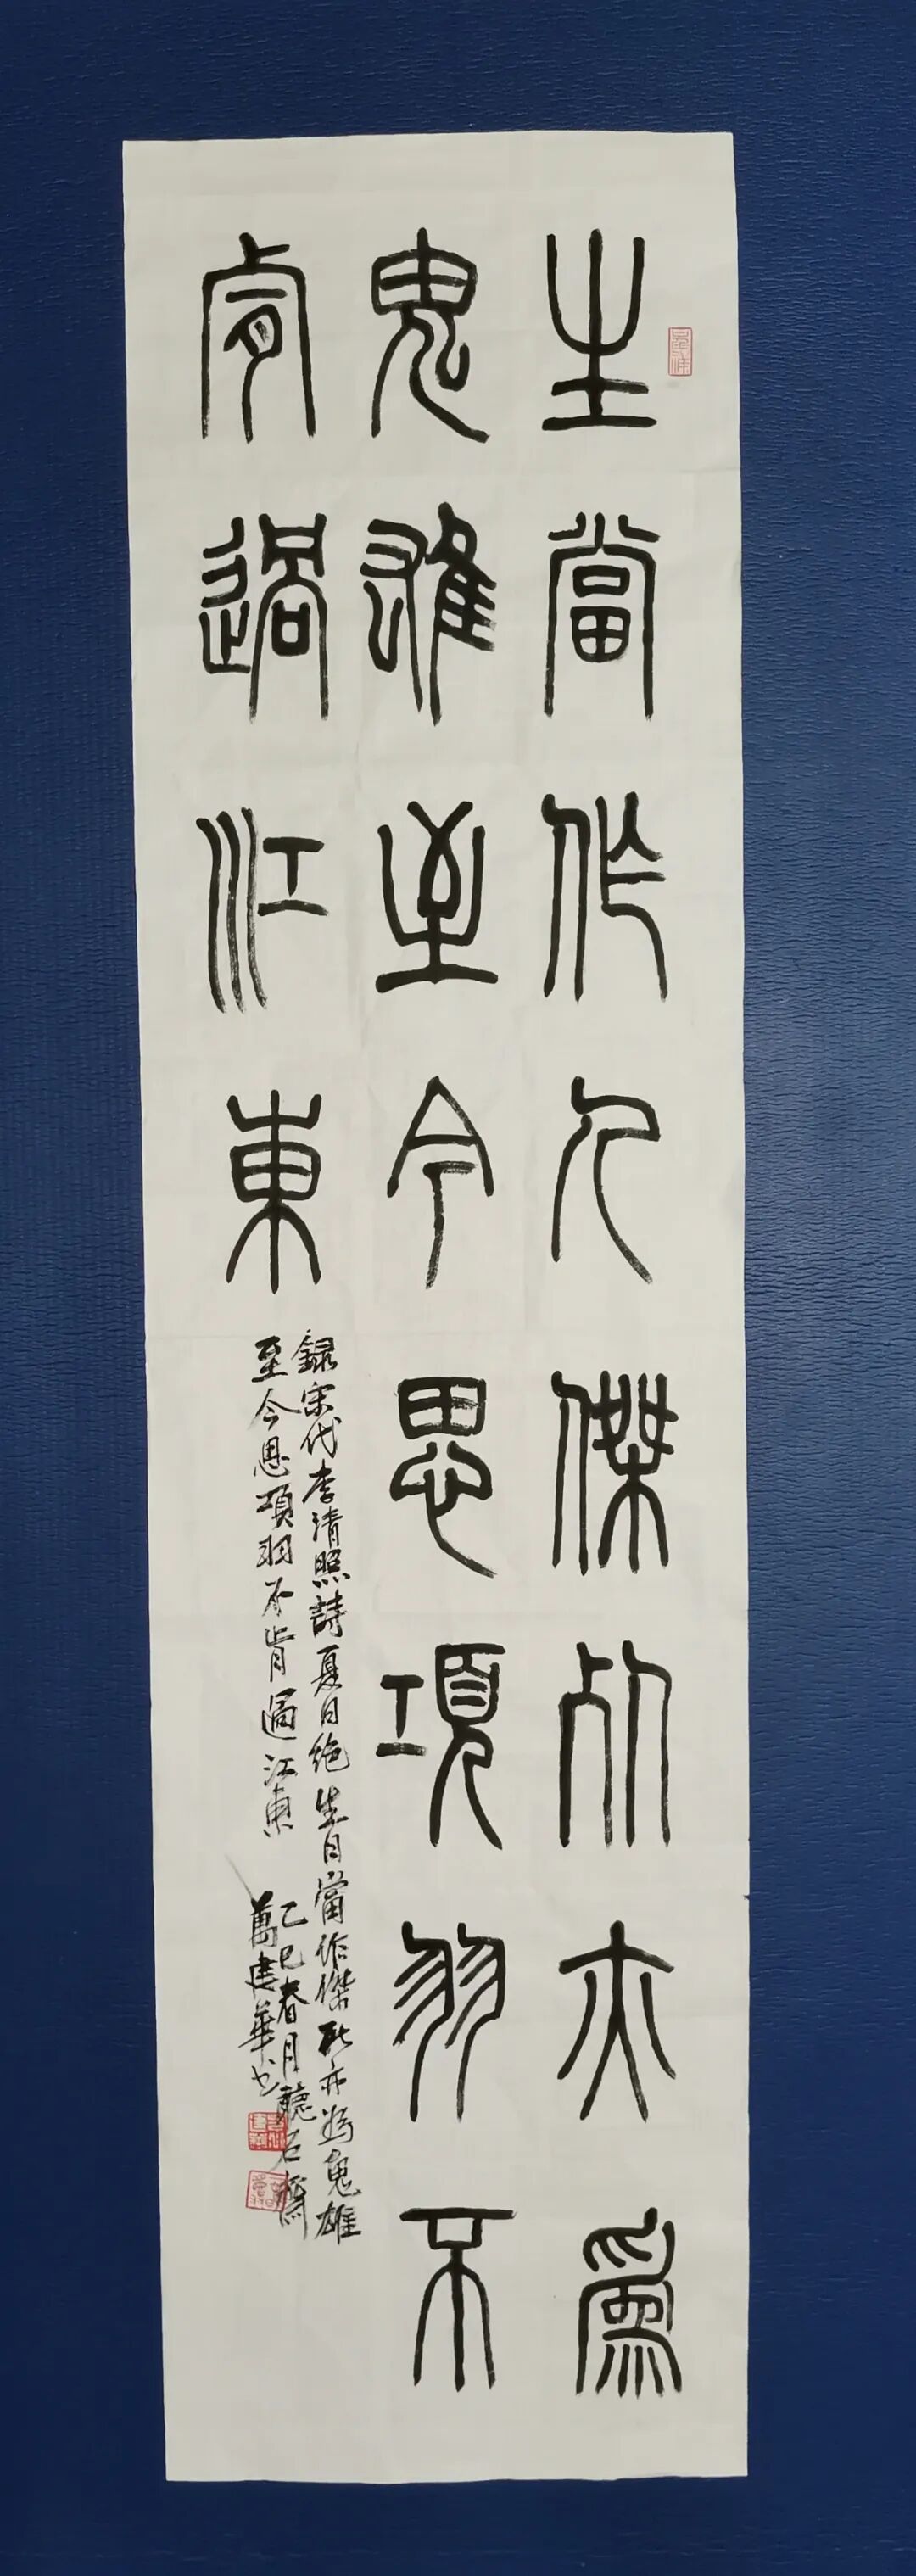 生當作人傑死亦爲
鬼雄至今思項羽不
肯過江東
録宋代李清照詩夏日绝生日當作傑死亦為鬼雄
至今思項羽不肯過江東
乙巳春月聽石齋
萬建華书